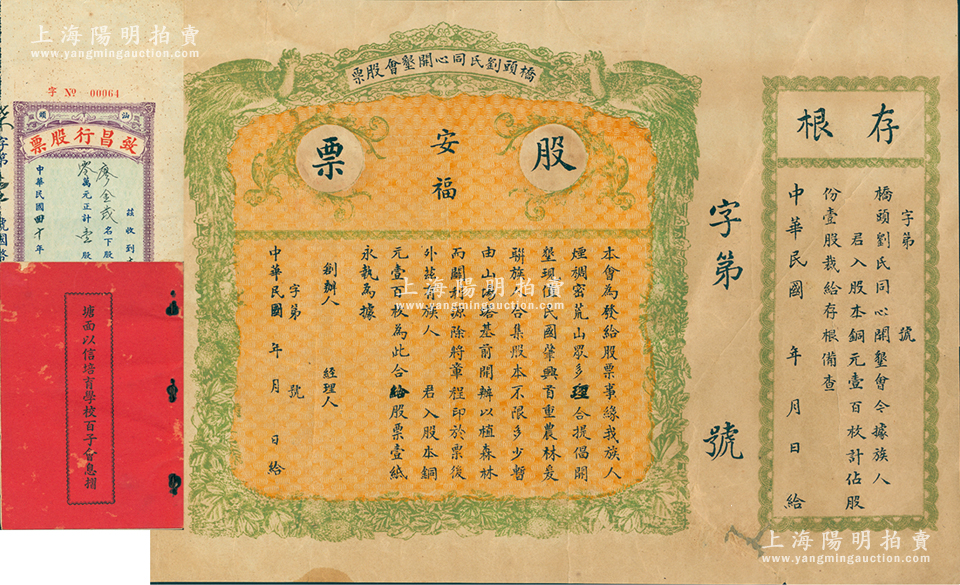 上海陽明拍賣
www.yangmingauction.com
上海陽明拍賣
www.yangmingauction.com
上海陽明拍賣
www.yangmingauction.com
存根
字第 號
橋頭劉氏同心開墾會今據族人
君入股本銅元壹百枚計佔股
份壹股裁給存根備查
中華民國 年 月 日 給
字第 號
橋頭劉氏同心開墾會股票
安福
股票
本會為發給股票事緣我族人
煙稠密荒山眾多理合提倡開
墾現值民國肇興首重農林爰
聯族人合集股本不限多少暫
由山場塔基前開辦以植森林
而闢利源除將章程印於票後
外茲有族人 君入股本銅
元壹百枚為此合給股票壹紙
永執為據
創辦人 經理人
字第 號
中華民國 年 月 日給
字 No 00064
汕頭
致昌行股票
茲收到
名下股
萬元正計壹股
中華民國四十年
字第
號國幣
塘西以信培育學校百子會息摺